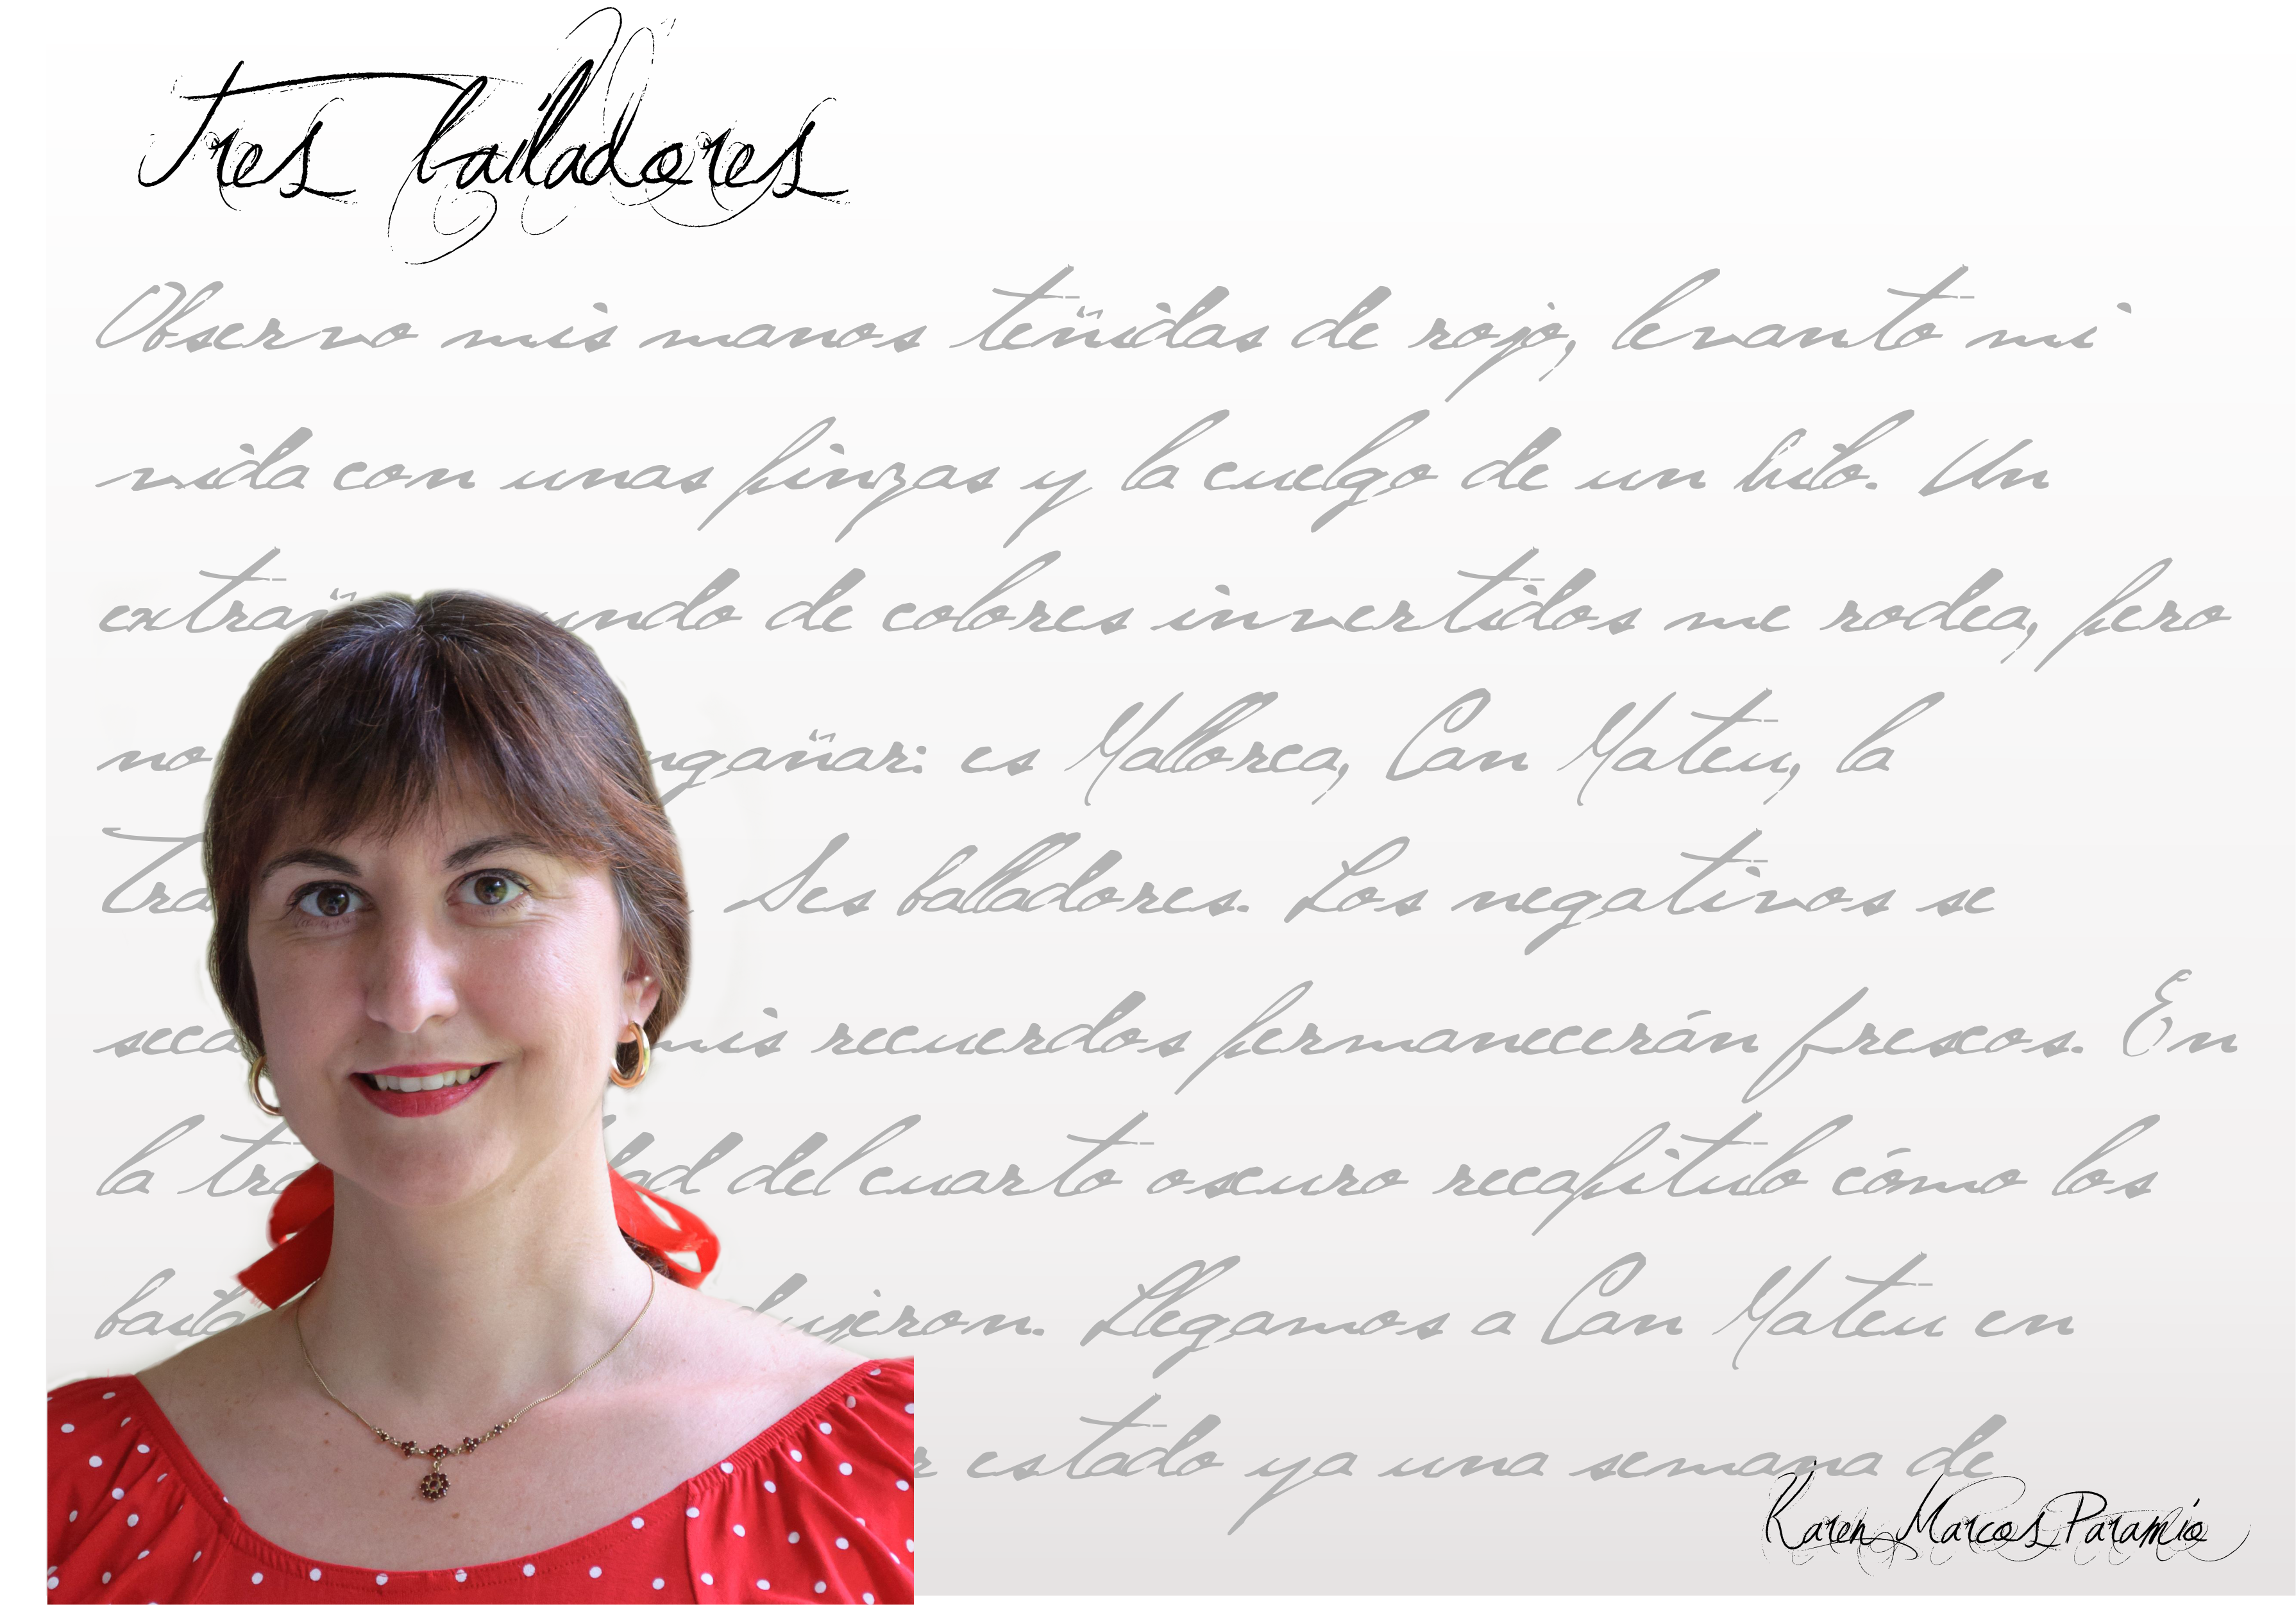 Tres bailadores
Observo mis manos teñidas de rojo, levanto mi
vida con unas pinzas y la cuelgo de un hilo. Un
undo de colores invertidos me rodea, pero
no ngañar: es Mallorca, Can Mateu, la
Tra Ses balladores. Los negativos se
seca mis recuerdos permanecerán frescos. En
la tra dad del cuarto oscuro recapitulo cómo los
baila dujeron. Llegamos a Can Mateu en
estado ya una semana de
Karen Marcos Paramio